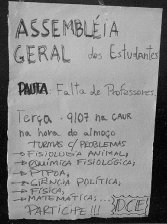 ASSEMBLÉIA
GERAL dos Estudantes
PAUTA: Falta de Professores
Terça - 9/07 na CAUR
na hora do almoço
TURMAS C/ PROBLEMAS
→ FISIOLOGIA ANIMAL,
→ QUÍMICA FISIOLÓGICA,
→ PTPDA,
→ CIÊNCIA POLÍTICA,
→ FÍSICA,
→ MATEMÁTICA...
PARTICIPE !!! DCE